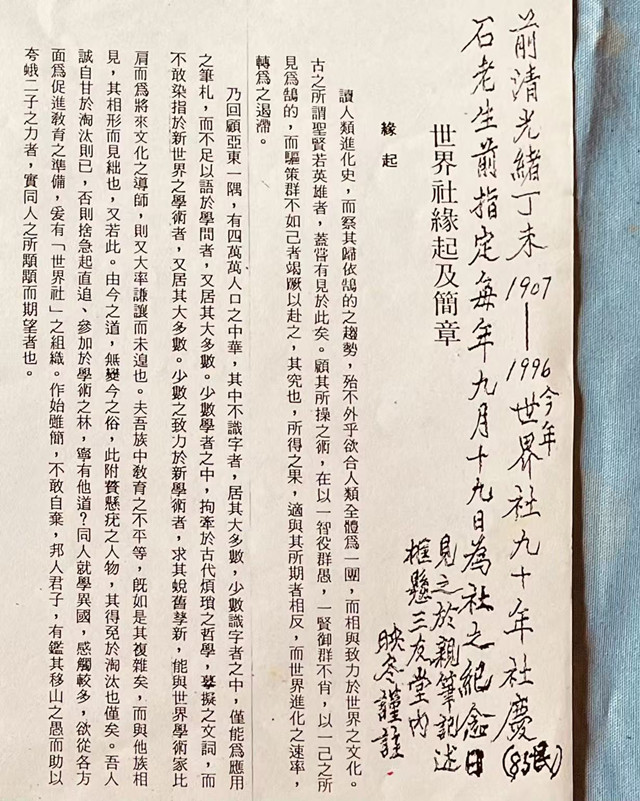 前清光緒丁未1907—1996今年世界社九十年社慶(85民)
石老生前指定每年九月十九日為社之紀念日
見之於親筆記述
框懸三友堂內
映冬謹註
世界社緣起及簡章
緣起
讀人類進化史,而察其歸依鵠的之趨勢,殆不外乎欲合人類全體為一團,而相與致力於世界之文化。
古之所謂聖賢若英雄者,蓋嘗有見於此矣。顧其所操之術,在以一智役群愚,一賢御群不肖,以一己之所
見為鵠的,而驅策群不如己者竭蹶以赴之,其究也,所得之果,適與其所期者相反,而世界進化之速率,
轉為之遏滯。
乃回顧亞東一隅,有四萬萬人口之中華,其中不識字者,居其大多數,少數識字者之中,僅能為應用
之筆札,而不足以語於學問者,又居其大多數。少數學者之中,拘牽於古代煩瑣之哲學,摹擬之文詞,而
不敢染指於新世界之學術者,又居其大多數。少數之致力於新學術者,求其蛻舊孳新,能與世界學術家比
肩而為將來文化之導師,則又大率謙讓而未遑也。夫吾族中教育之不平等,既如是其複雜矣,而與他族相
見,其相形而見絀也,又若此。由今之道,無變今之俗,此附贅懸疣之人物,其得免於淘汰也僅矣。吾人
誠自甘於淘汰則已,否則捨急起直追、參加於學術之林,寧有他道?同人就學異國,感觸較多,欲從各方
面為促進教育之準備,爰有「世界社」之組織。作始雖簡,不敢自棄,邦人君子,有鑑其移山之愚而助以
夸蛾二子之力者,實同人之所顒顒而期望者也。